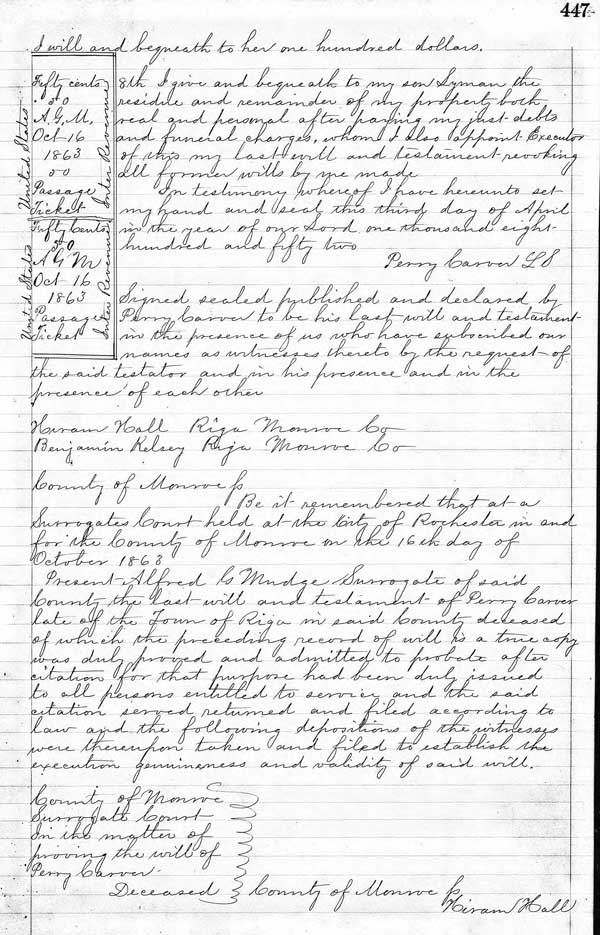 447
I will and begneath to her one hundred dollars.
Fifty cents
50
A. G. M.
Oct 16
1863
50
Passage
Ticket
United States
Inter Revenue
Fifty Cents
50
A G M
Oct 16
1863
Passage
Ticket
United States
Inter Revenue
8th I give and begneath to my son Lyman the
residue and remainder of my property both
real and personal after paying my just debts
and funeral charges, whom I also appoint Executor
of this my last will and testament revoking
all former wills by me made
In testimony whereof I have hereunto set
my hand and seal this third day of April
in the year of our Lord one thousand eight
hundred and fifty two
Perry Carver L S
Signed sealed published and declared by
Perry Carver to be his last will and testament
in the presence of us who have subscribed our
names as witnesses thereto by the request of
the said testator and in his presence and in the
presence of each other
Hiram Hall Riga Monroe Co
Benjamin Kelsey Riga Monroe Co
County of Monroe ss
Be it remembered that at a
Surrogates Court held at the City of Rochester in and
for the County of Monroe on the 16th day of
October 1863
Present Alfred G Mudge Surrogate of said
County the last will and testament of Perry Carver
late of the Town of Riga in said County deceased
of which the preceding record of will is a true copy
was duly proved and admitted to probate after
citation for that purpose had been duly issued
to all persons entitled to service and the said
citation served returned and filed according to
law and the following depositions of the witnesses
were thereupon taken and filed to establish the
execution genuineness and validity of said will.
County of Monroe
Surrogate Court
In the matter of
proving the will of
Perry Carver
Deceased County of Monroe ss
Hiram Hall